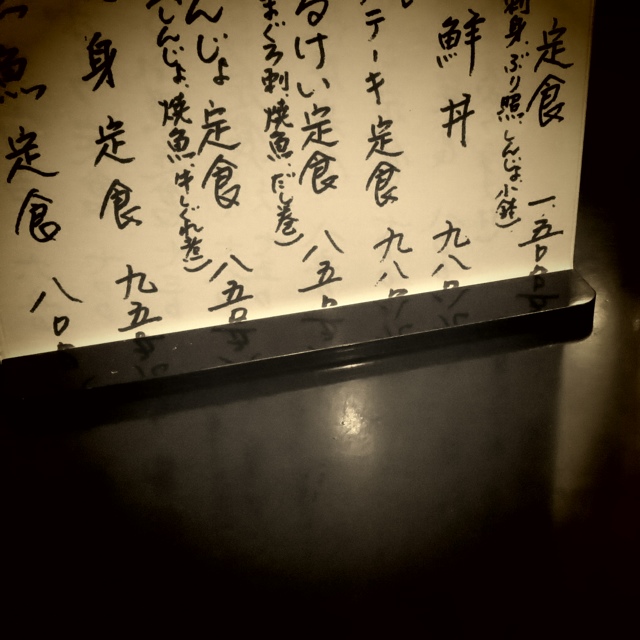 定食 一、五〇〇
刺身 ぶり照 しんじょ 小鉢)
鮮丼 九八〇
テーキ定食 九八〇
るけい定食 八五〇
まぐろ刺 焼魚 だし巻)
んじょ定食 八五〇
しんじょ 焼魚 牛しぐれ煮)
身定食 九五〇
魚定食 八〇